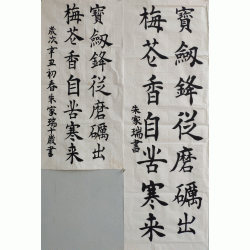 寶劔鋒從磨礪出
梅花香自苦寒来
朱家瑞書
寶劔鋒從磨礪出
梅花香自苦寒来
歲次辛丑初春朱家瑞十歲書